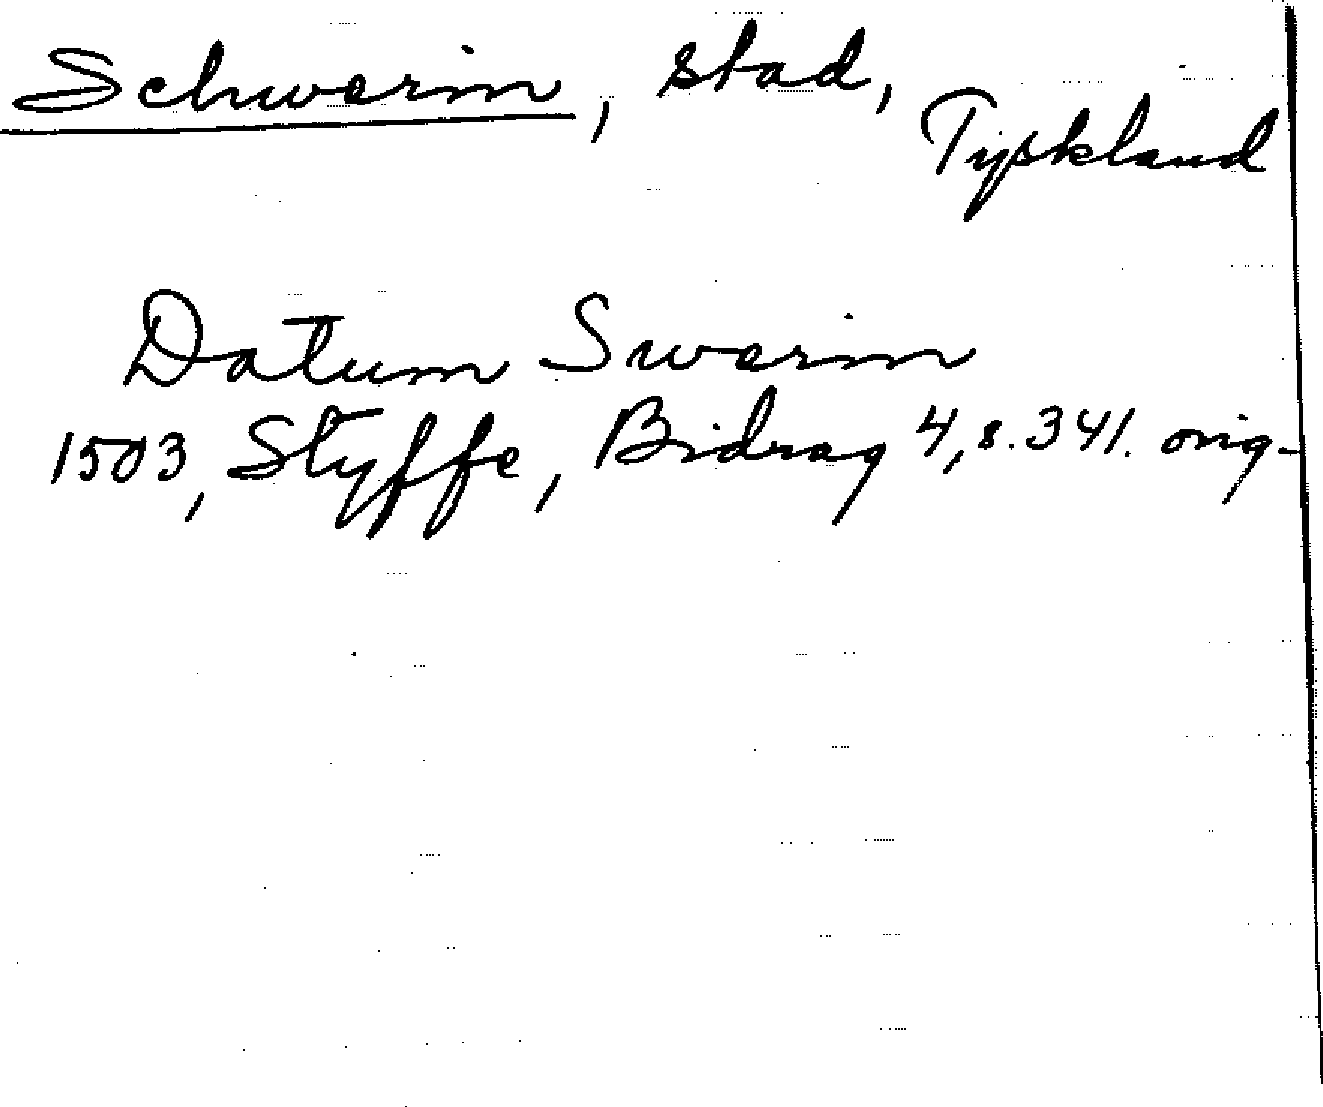 Schwerin, stad,
Tyskland
Datum Swerin
1503, Styffe, Bidrag 4, s. 341. orig.